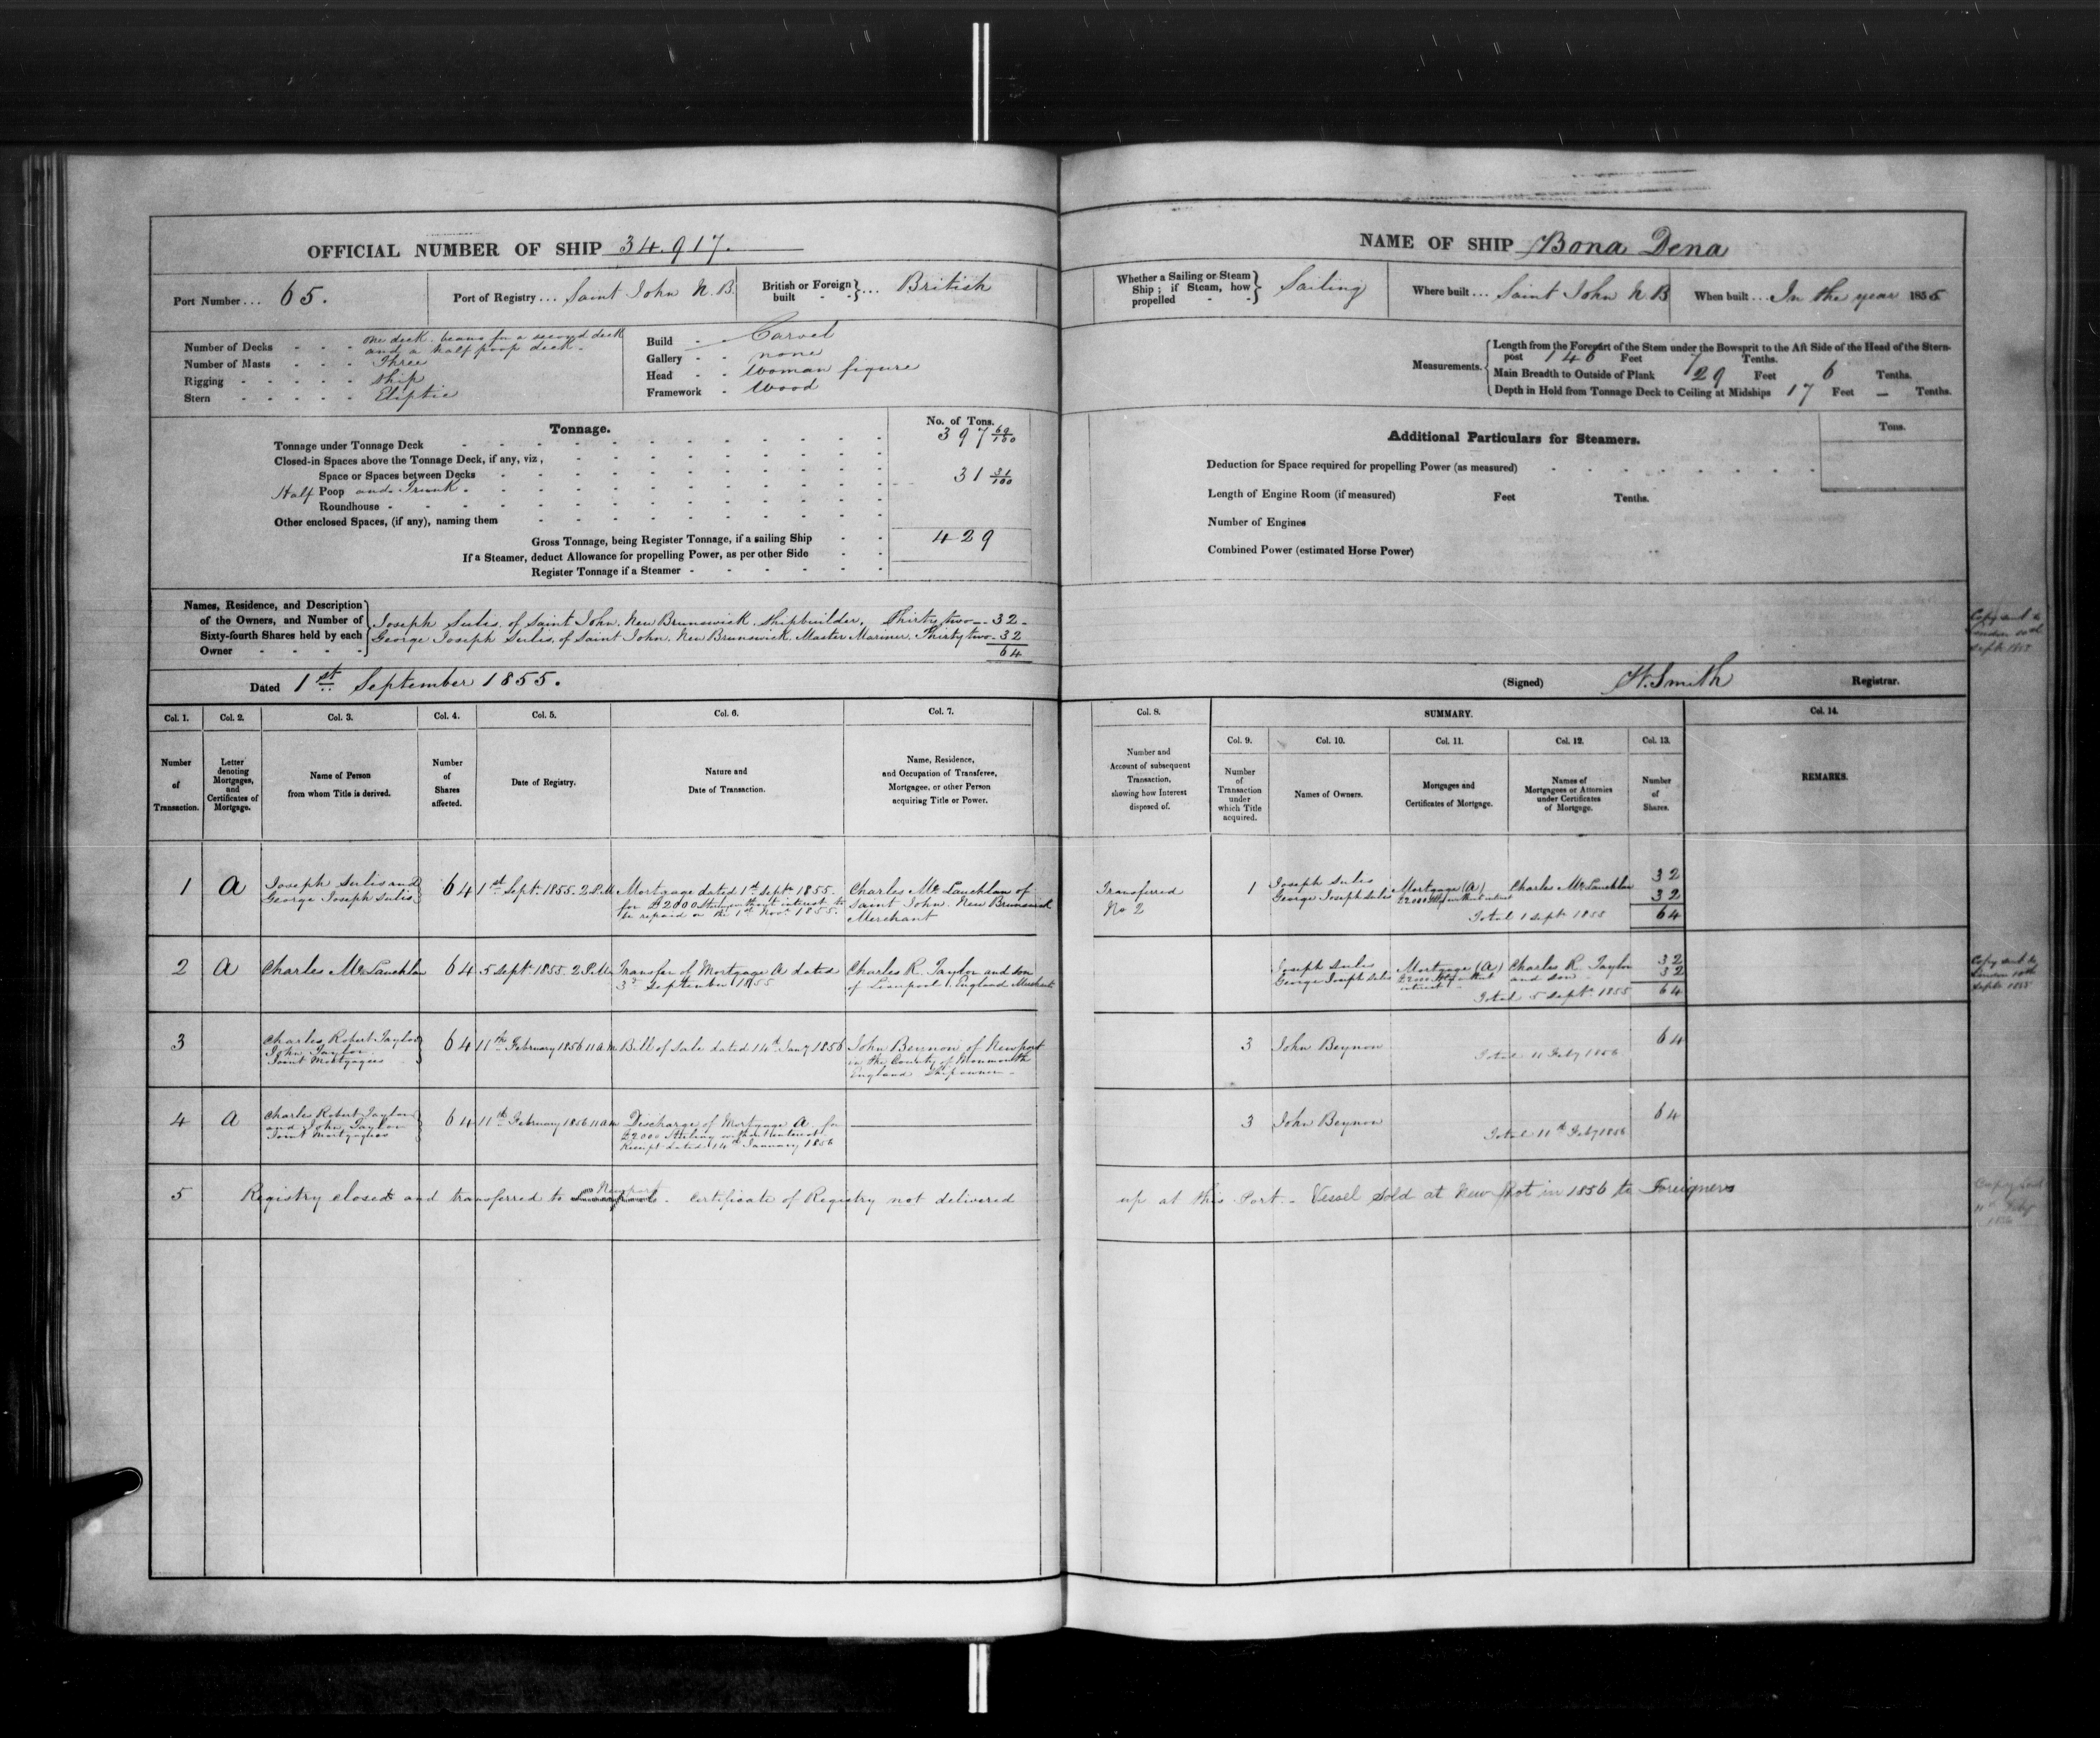 OFFICIAL NUMBER OF SHIP 34.917.
Port Number... 65.
Port of Registry... Saint John N.B.
British or Foreign built - -}... British
Number of Decks - - - One deck beams for a second deck
and a half poop deck -
Number of Masts - - - Three
Rigging - - - - - Ship
Stern - - - - - Eliptic
Build - - Carvel
Gallery - - none
Head - - Woman figure
Framework - Wood
Tonnage.
No. of Tons.
Tonnage under Tonnage Deck 397 69/100
Closed-in Spaces above the Tonnage Deck, if any, viz,
Space or Spaces between Decks
Half Poop and Trunk - 31 31/100
Roundhouse -
Other enclosed Spaces, (if any), naming them
Gross Tonnage, being Register Tonnage, if a sailing Ship - - 429
If a Steamer, deduct Allowance for propelling Power, as per other Side - -
Register Tonnage if a Steamer -
Names, Residence, and Description
of the Owners, and Number of
Sixty-fourth Shares held by each
Owner - - - -
Joseph Sulis, of Saint John, New Brunswick, Shipbuilder, Thirty two - 32 -
George Joseph Sulis, of Saint John, New Brunswick, Master Mariner, Thirty two - 32
64
Dated 1st September 1855.
NAME OF SHIP Bona Dena
Whether a Sailing or Steam
Ship; if Steam, how
propelled - -
Sailing
Where built... Saint John N.B
When built... In the year 1855
Measurements.
Length from the Forepart of the Stem under the Bowsprit to the Aft Side of the Head of the Stern-
post 146 Feet 7 Tenths.
Main Breadth to Outside of Plank 29 Feet 6 Tenths.
Depth in Hold from Tonnage Deck to Ceiling at Midships 17 Feet — Tenths.
Additional Particulars for Steamers.
Tons.
Deduction for Space required for propelling Power (as measured)
Length of Engine Room (if measured) Feet Tenths.
Number of Engines
Combined Power (estimated Horse Power)
Copy sent to
London 10th
Sept 1855
(Signed) W. Smith Registrar.
Col. 1. Col. 2. Col. 3. Col. 4. Col. 5. Col. 6. Col. 7.
Number of Transaction.
Letter denoting Mortgages, and Certificates of Mortgage.
Name of Person from whom Title is derived.
Number of Shares affected.
Date of Registry.
Nature and Date of Transaction.
Name, Residence, and Occupation of Transferee, Mortgagee, or other Person acquiring Title or Power.
Col. 8. SUMMARY. Col. 14.
Col. 9. Col. 10. Col. 11. Col. 12. Col. 13.
Number and Account of subsequent Transaction, showing how Interest disposed of.
Number of Transaction under which Title acquired.
Names of Owners.
Mortgages and Certificates of Mortgage.
Names of Mortgagees or Attornies under Certificates of Mortgage.
Number of Shares.
REMARKS.
1 A
Joseph Sulis and
George Joseph Sulis
64
1st Septr 1855. 2 P.M
Mortgage dated 1st Septr 1855.
for £2000 Sterling without interest to
be repaid on the 1st Novr 1855.
Charles Mc Lauchlan of
Saint John. New Brunswick
Merchant
Transferred
No 2
1
Joseph Sulis
George Joseph Sulis
Mortgage (A)
£2000 Stg without interest
Charles Mc Lauchlan
32
32
Total 1 Septr 1855 64
2 A
Charles Mc Lauchlan
64
5 Septr 1855. 2 P.M.
Transfer of Mortgage A dated
3d September 1855
Charles R. Taylor and Son
of Liverpool, England Merchants
Joseph Sulis
George Joseph Sulis
Mortgage (A)
£2000 Stg without
interest
Charles R Taylor
and Son
32
32
Total 5 Septr 1855 64
Copy sent to
London 10th
Sept 1855
3
Charles Robert Taylor
John Taylor
Joint Mortgagees
64
11th February 1856 11 A.M
Bill of Sale dated 14th Jany 1856
John Beynon of Newport
in the County of Monmouth
England Ship owner -
3 John Beynon
Total 11 Feby 1856
64
4 A
Charles Robert Taylor
and John Taylor
Joint Mortgagees
64
11th February 1856 11 A M
Discharge of Mortgage A. for
£2000 Sterling without interest
Receipt dated 14th January 1856
3 John Beynon
Total 11th Feby 1856
64
5 Registry closed and transferred to Newport - Certificate of Registry not delivered up at this Port - Vessel Sold at New Port in 1856 to Foreigners
Copy sent
11th Feby
1856